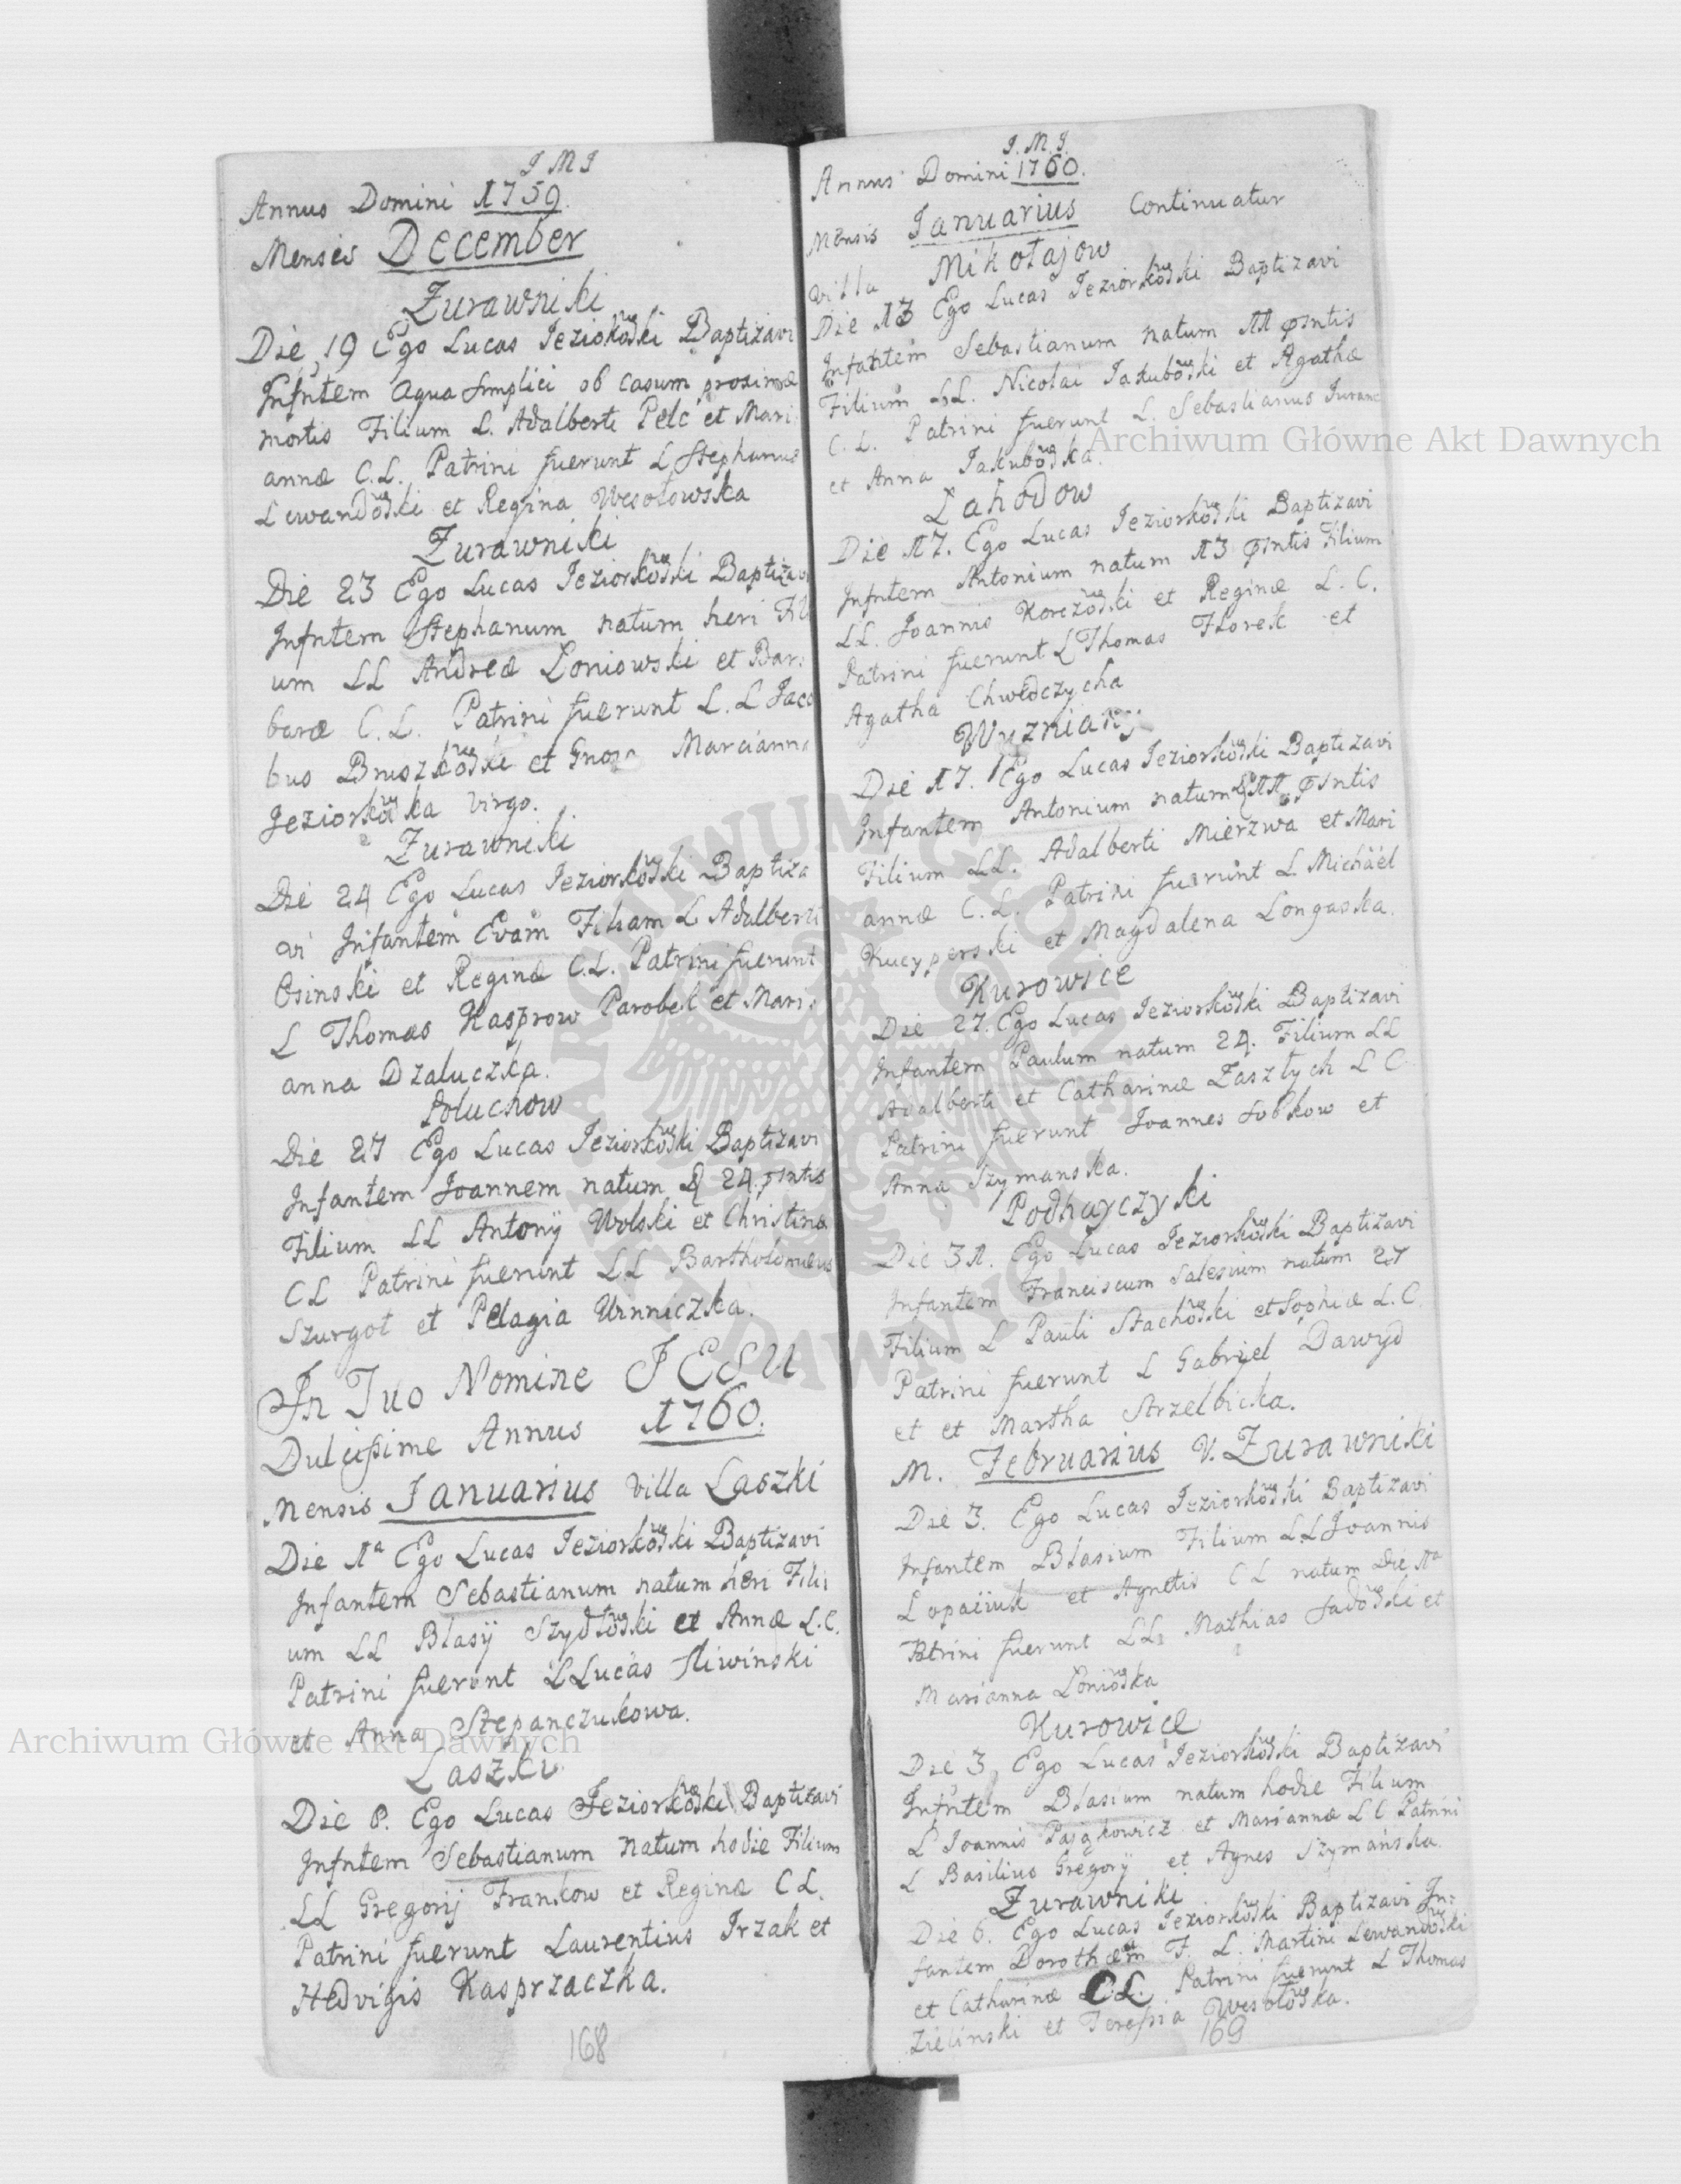 J M J
Annus Domini 1759.
Mensis December
Zurawniki
Die 19 Ego Lucas Jeziorkowski Baptizavi
Infntem aqua simplici ob casum proximæ
mortis Filium L. Adalberti Pelc et Mari
annæ C.L. Patrini fuerunt L Stephanus
Lewandowski et Regina Wesołowska
Zurawniki
Die 23 Ego Lucas Jeziorkowski Baptizavi
Infntem Stephanum natum heri Fili
um LL Andreæ Loniowski et Bar:
baræ C.L. Patrini fuerunt L.L Jaco
bus Bruszkowski et Marcianna
Jeziorkowska virgo.
Zurawniki
Die 24 Ego Lucas Jeziorkowski Baptiza
vi Infantem Evam Filiam L Adalberti
Osinski et Reginæ C.L. Patrini fuerunt
L Thomas Kasprow Parobek et Mari:
anna Dzaluczka.
Poluchow
Die 27 Ego Lucas Jeziorkowski Baptizavi
Infantem Joannem natum 24 psntis
Filium LL Antonÿ Wolski et Christinæ
CL Patrini fuerunt LL Bartholomeus
Szurgot et Pelagia Winniczka.
In Tuo Nomine JESU
Dulcissime Annus 1760.
Mensis Januarius villa Laszki
Die 1ª Ego Lucas Jeziorkowski Baptizavi
Infantem Sebastianum natum heri Fili
um LL Blasÿ Szydłowski et Annæ L.C.
Patrini fuerunt L Lucas Sliwinski
et Anna Stepanczukowa.
Laszki
Die 8. Ego Lucas Jeziorkowski Baptizavi
Infntem Sebastianum natum hodie Filium
LL Gregorij Frankow et Reginæ C L.
Patrini fuerunt Laurentius Irzak et
Hedvigis Kasprzaczka.
168
J. M. J.
Annus Domini 1760.
Mensis Januarius Continuatur
villa Mikołajow
Die 13 Ego Lucas Jeziorkowski Baptizavi
Infantem Sebastianum natum 11 psntis
Filium LL. Nicolai Jakubowski et Agathæ
C.L. Patrini fuerunt L. Sebastianus
et Anna Jakubowska.
Lahodow
Die 17. Ego Lucas Jeziorkowski Baptizavi
Infntem Antonium natum 13 psntis Filium
LL. Joannis Korczowski et Reginæ L.C.
Patrini fuerunt L Thomas Florek et
Agatha Chwedczycha
Wyzniany
Die 17. Ego Lucas Jeziorkowski Baptizavi
Infantem Antonium natum 11 psntis
Filium LL. Adalberti Mierzwa et Mari
annæ C.L. Patrini fuerunt L Michaël
Kucyperski et Magdalena Longaska.
Kurowice
Die 27. Ego Lucas Jeziorkowski Baptizavi
Infantem Paulum natum 24. Filium LL
Adalberti et Catharinæ Zaszłych L C
Patrini fuerunt Joannes Sobkow et
Anna Szymanska.
Podhayczyki
Die 31. Ego Lucas Jeziorkowski Baptizavi
Infantem Franciscum Salesium natum 27
Filium L Pauli Stachowski et Sophiæ L.C.
Patrini fuerunt L Gabriel Dawyd
et et Martha Strzelbicka.
M. Februarius V. Zurawniki
Die 3. Ego Lucas Jeziorkowski Baptizavi
Infantem Blasium Filium LL Joannis
Lopaiiuk et Agnetis C L natum Die 1ª
Patrini fuerunt LL Mathias Sadowski et
Marianna Loniowska
Kurowice
Die 3 Ego Lucas Jeziorkowski Baptizavi
Infntem Blasium natum hodie Filium
L Joannis Pasąkowicz et Mariannæ L C Patrini
L Basilius Gregorÿ et Agnes Szymańska.
Zurawniki
Die 6. Ego Lucas Jeziorkowski Baptizavi In:
fantem Dorotheam F. L. Martini Lewandowski
et Catharinæ C.L. Patrini fuerunt L Thomas
Zielinski et Teressia Wesołowska.
169
Archiwum Główne Akt Dawnych
Archiwum Główne Akt Dawnych
ARCHIWUM GŁÓWNE AKT DAWNYCH